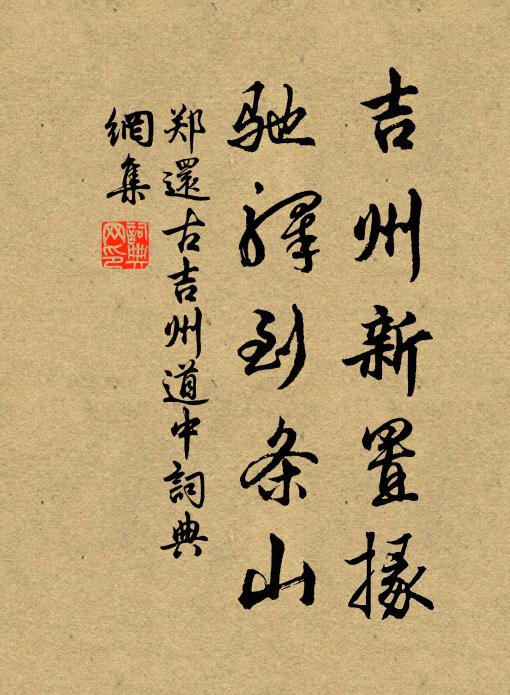 吉州新置掾
驰驿到条山
郑還古吉州道中詞典
網集
詞典
网印